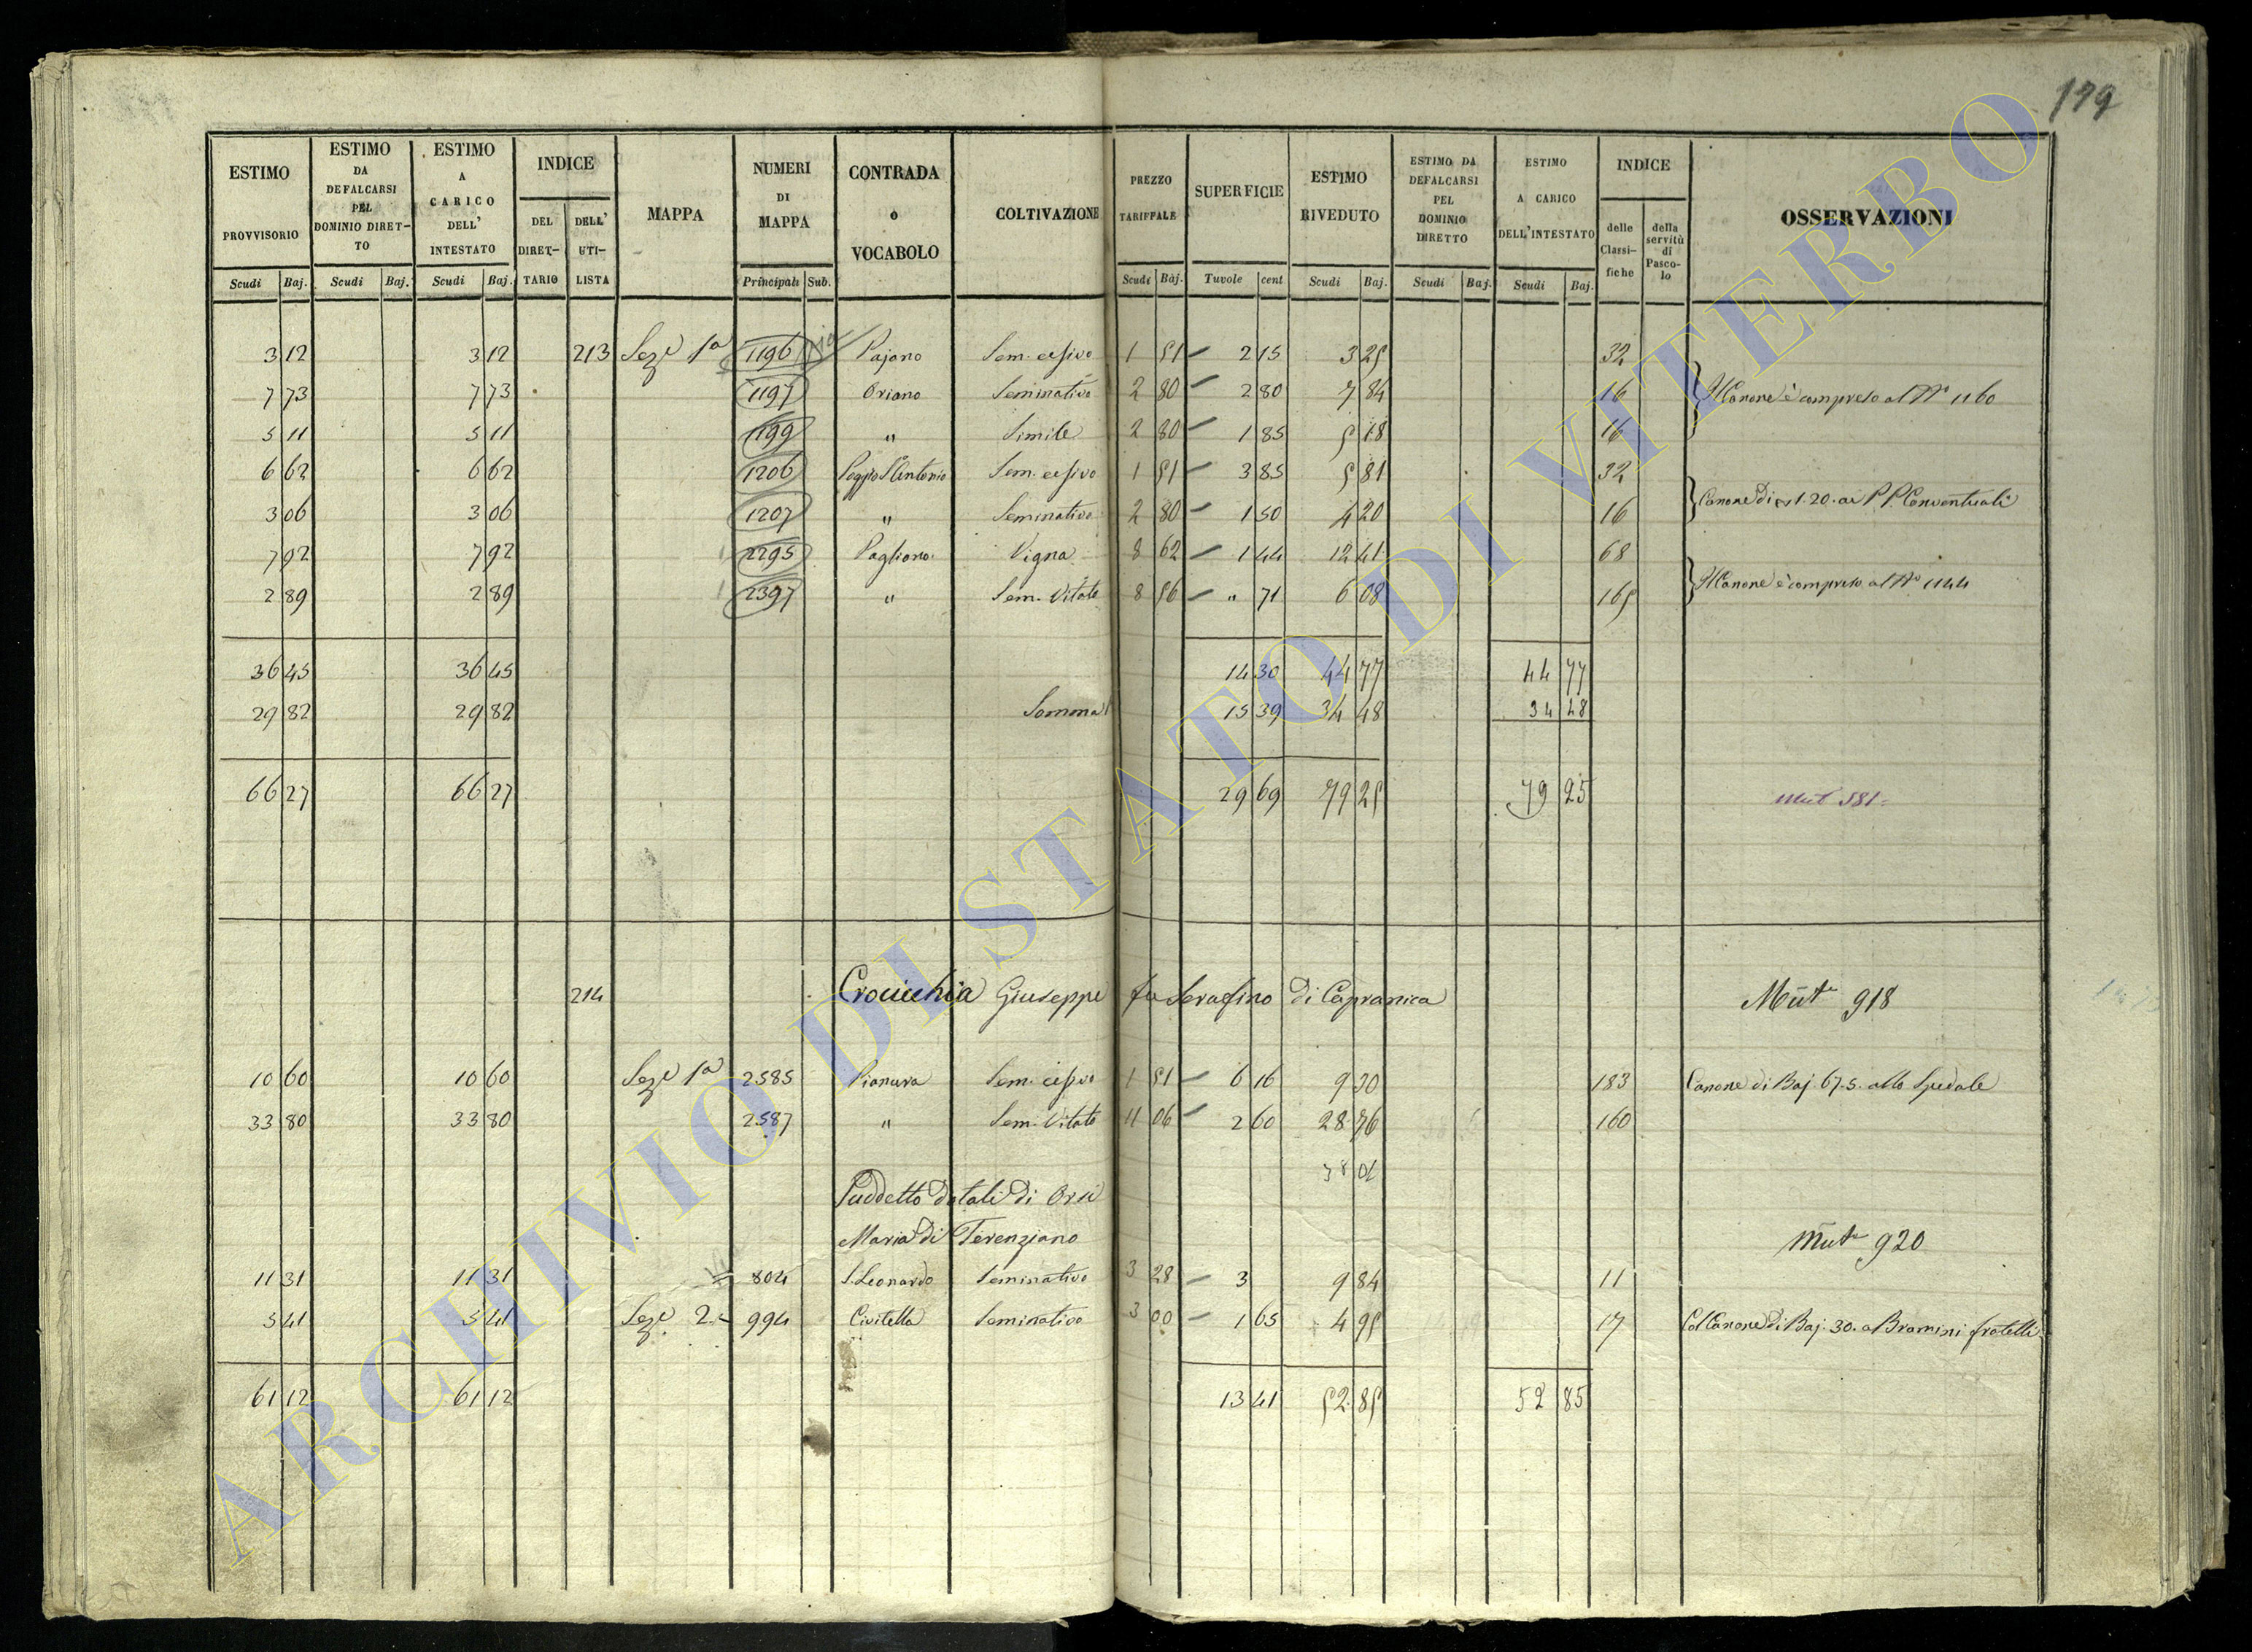 179
ESTIMO PROVVISORIO Scudi Baj.
ESTIMO DA DEFALCARSI PEL DOMINIO DIRETTO Scudi Baj.
ESTIMO A CARICO DELL' INTESTATO Scudi Baj.
INDICE DEL DIRETTARIO DELL' UTILISTA
MAPPA
NUMERI DI MAPPA Principali Sub.
CONTRADA o VOCABOLO
COLTIVAZIONE
PREZZO TARIFFALE Scudi Baj.
SUPERFICIE Tavole cent
ESTIMO RIVEDUTO Scudi Baj.
ESTIMO DA DEFALCARSI PEL DOMINIO DIRETTO Scudi Baj.
ESTIMO A CARICO DELL'INTESTATO Scudi Baj.
INDICE delle Classifiche della servitù di Pascolo
OSSERVAZIONI
3 12 3 12 213 Sez.e 1a 1196 Pajano Sem. cesivo 1 51 2 15 3 25 32
7 73 7 73 1197 Oriano Seminativo 2 80 2 80 7 84 16 Il Canone è compreso al No 1160
5 11 5 11 1199 " Simile 2 80 1 85 5 18 16
6 62 6 62 1206 Poggio S. Antonio Sem. cesivo 1 51 3 85 5 81 32
3 06 3 06 1207 " Seminativo 2 80 1 50 4 20 16 Canone di 1.20. ai P.P. Conventuali
7 92 7 92 2295 Pagliano Vigna 8 62 1 44 12 41 68
2 89 2 89 2397 " Sem. Vitato 8 56 " 71 6 08 165 Il Canone è compreso al No 1144
36 45 36 45 14 30 44 77 44 77
29 82 29 82 Somma 15 39 34 48 34 48
66 27 66 27 29 69 79 25 79 25 Mut 581
214 Crocicchia Giuseppe fu Serafino di Capranica Mut.e 918
10 60 10 60 Sez.e 1a 2585 Pianura Sem. cesivo 1 51 6 16 9 30 183 Canone di Baj. 67.5. allo Spedale
33 80 33 80 2587 " Sem. Vitato 11 06 2 60 28 76 160
38 06
Suddetto dotali di Orsi
Maria di Terenziano Mut.e 920
11 31 11 31 804 S. Leonardo Seminativo 3 28 3 9 84 11
5 41 5 41 Sez.e 2. 994 Civitella Seminativo 3 00 1 65 4 95 17 Col Canone di Baj. 30. a Bramini fratelli
61 12 61 12 13 41 52 85 52 85
ARCHIVIO DI STATO DI VITERBO